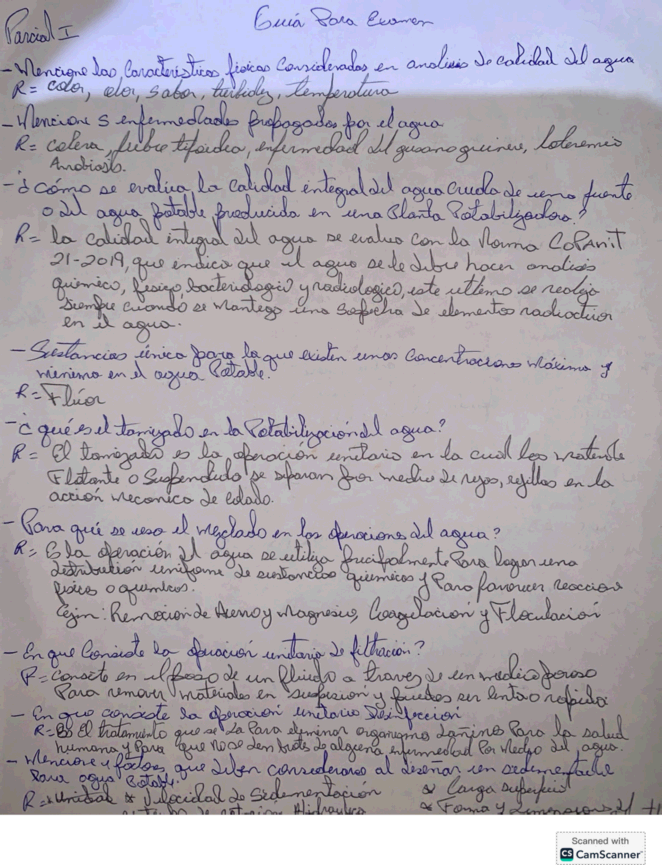 Parcial I
Guía Para Examen
- Mencione las Características físicas Consideradas en analisis de calidad del agua
R = color, olor, sabor, turbidez, temperatura
- Mencione 5 enfermedades propagadas por el agua
R = colera, fiebre tifoidea, enfermedad del gusano guinea,
Amebiasis.
- ¿Cómo se evalua la calidad integral del agua cruda de una fuente
o del agua potable producida en una Planta Potabilizadora?
R = la calidad integral del agua se evalua con la Norma COPANIT
21-2019, que indica que al agua se le debe hacer analisis
químico, físico, bacteriologico y radiologico, este ultimo se realiza
siempre cuando se mantega una sospecha de elementos radioactivos
en el agua.
- Sustancias única para la que existen unas Concentraciones Máxima y
minima en el agua Potable.
R = Flúor
- ¿qué es el tamizado en la Potabilización del agua?
R = El tamizado es la operación unitaria en la cual los material
Flotante o Suspendido se separan por medio de rejas, rejillas en la
acción mecanica de colado.
- Para qué se usa el mezclado en las operaciones del agua?
R = Es la operación del agua se utiliza principalmente Para lograr una
distribution uniforme de sustancias químicas y Para favorecer reaccion
físico o químicos.
Ejm: Remoción de Hierro y Magnesio, Coagulación y Floculación
- En que Consiste la operación unitaria de filtración?
R = Consiste en el paso de un fluido a través de un medio poroso
Para remover materiales en suspension y puedes ser lenta o rapida
- En que consiste la operación unitaria Desinfección
R = Es El tratamiento que se da Para eliminar organismo dañinos Para la salud
humana y Para que no se den brotes de alguna enfermedad Por Medio del agua.
- Mencione 4 factores que deben considerarse al diseñar un sedimentador
Para agua Potable.
R = * Unidad * Velocidad de Sedimentación * Carga Superficial
de retencion Hidraulico * Forma y Dimensiones del
Scanned with
CS CamScanner